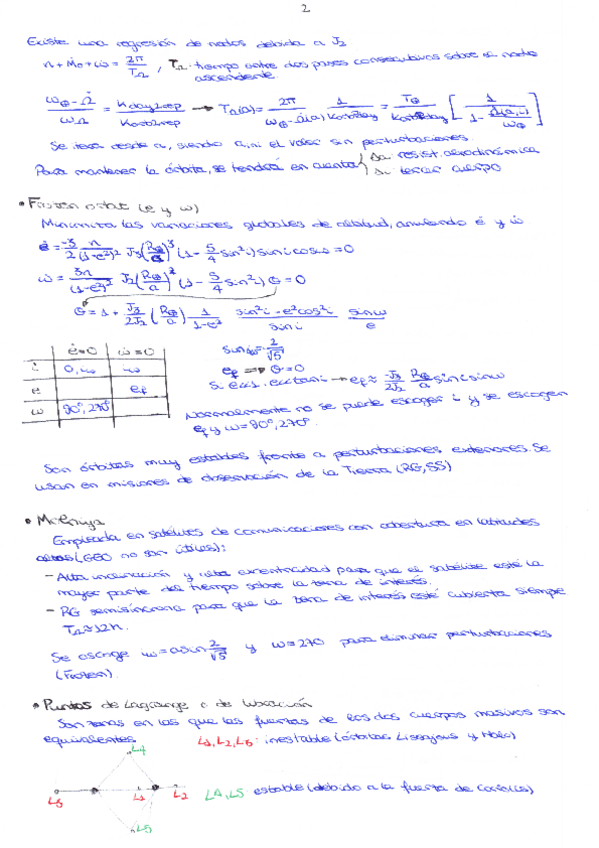 2
Existe una regresión de nodos debida a J2
n + Ṁo + ω̇ = 2π/TΩ , TΩ: tiempo entre dos pases consecutivos sobre el nodo
ascendente
(ω⊕ - Ω̇)/ωΩ = Kday2rep/Korb2rep → TΩ(a) = 2π/(ω⊕ - Ω̇(a)) 1/Korb2day = T⊕/Korb2day [1/(1 - Ω̇(a,i)/ω⊕)]
Se itera desde a, siendo aini el valor sin perturbaciones.
Para mantener la órbita, se tendrá en cuenta { Δa: resist. aerodinámica
Δi: tercer cuerpo
• Frozen orbit (e y ω)
Minimiza las variaciones globales de altitud, anulando ė y ω̇
ė = -3/2 n/(1-e²)² J3 (R⊕/a)³ (1 - 5/4 sin²i) sin i cos ω = 0
ω̇ = 3n/(1-e²)² J2 (R⊕/a)² (1 - 5/4 sin²i) Θ = 0
Θ = 1 + J3/2J2 (R⊕/a) 1/(1-e²) (sin²i - e²cos²i)/sin i sin ω/e
ė=0 ω̇=0
i 0, icr icr
e ef
ω 90°, 270°
sin icr = 2/√5
ef ⟹ Θ=0
→ ef ≈ -J3/2J2 R⊕/a sin i sin ω
Normalmente no se puede escoger i y se escogen
ef y ω = 90°, 270°.
Son órbitas muy estables frente a perturbaciones exteriores. Se
usan en misiones de observación de la Tierra (RG, SS)
• Molniya
Empleada en satélites de comunicaciones con cobertura en latitudes
altas (GEO no son útiles):
- Alta inclinación y alta excentricidad para que el satélite esté la
mayor parte del tiempo sobre la zona de interés.
- RG semisíncrona para que la zona de interés esté cubierta siempre
TΩ ≈ 12h.
Se escoge i = asin 2/√5 y ω = 270 para eliminar perturbaciones
(Frozen).
• Puntos de Lagrange o de libración
Son zonas en las que las fuerzas de los dos cuerpos masivos son
equivalentes
L1, L2, L3: inestable (órbitas Lissajous y Halo)
L4
L3 L1 L2
L4, L5: estable (debido a la fuerza de Coriolis)
L5